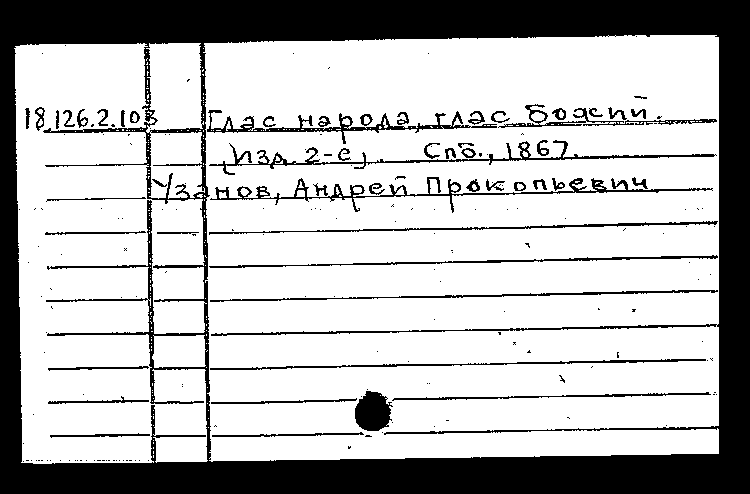 18.126.2.103 Глас народа, глас Божий.
[Изд. 2-е]. Спб., 1867.
Узанов, Андрей Прокопьевич